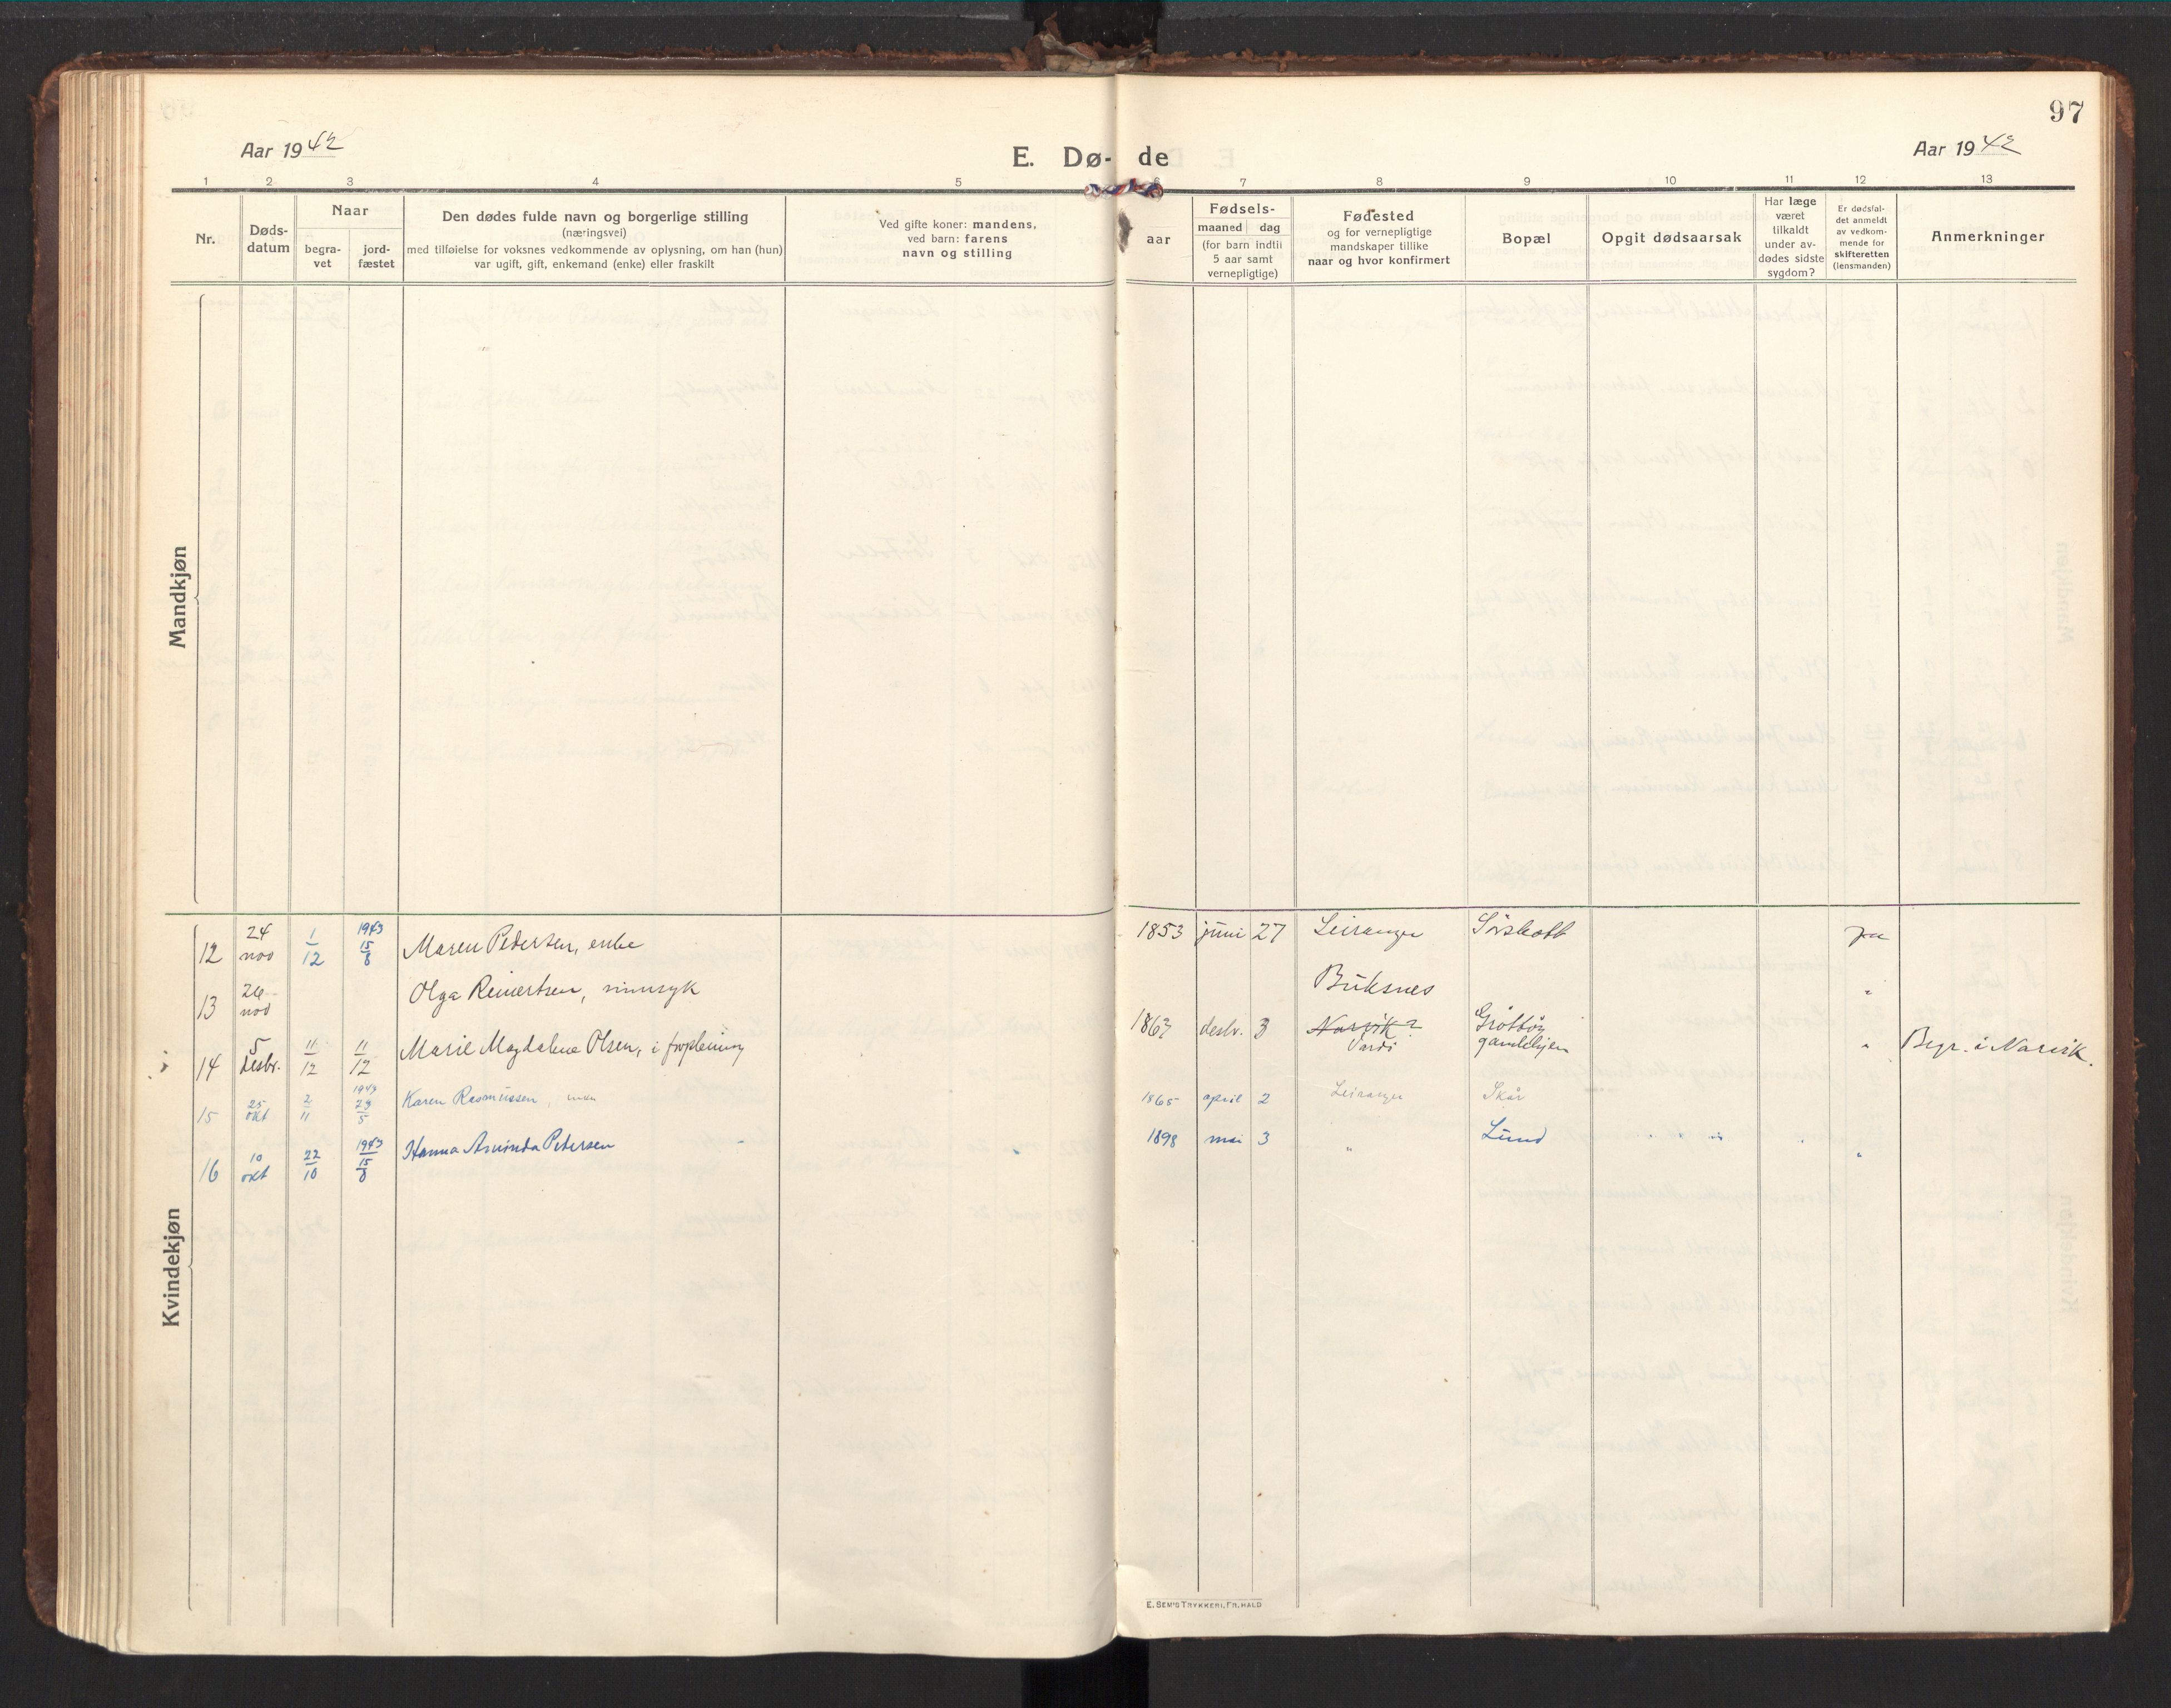 97
Aar 1942
E. Dø- de
Aar 1942
1 2 3 4 5 6 7 8 9 10 11 12 13
Nr.
Døds-
datum
Naar
begra-
vet
jord-
fæstet
Den dødes fulde navn og borgerlige stilling
(næringsvei)
med tilføielse for voksnes vedkommende av oplysning, om han (hun)
var ugift, gift, enkemand (enke) eller fraskilt
Ved gifte koner: mandens,
ved barn: farens
navn og stilling
aar
Fødsels-
maaned dag
(for barn indtil
5 aar samt
vernepligtige)
Fødested
og for vernepligtige
mandskaper tillike
naar og hvor konfirmert
Bopæl
Opgit dødsaarsak
Har læge
været
tilkaldt
under av-
dødes sidste
sygdom?
Er dødsfal-
det anmeldt
av vedkom-
mende for
skifteretten
(lensmanden)
Anmerkninger
Mandkjøn
Kvindekjøn
12 24 nov 1/12 1943 15/8 Maren Pedersen, enke 1853 juni 27 Leiranger Sørskott ja
13 26 nov Olga Reinertsen, sinnsyk Buksnes "
14 5 desbr. 11/12 11/12 Marie Magdalene Olsen, i forpleining 1863 desbr. 3 Narvik? Grøttøy
gamlehjem " Begr. i Narvik.
15 25 okt 2/11 1943 23/5 Karen Rasmussen, 1865 april 2 Leiranger Skår
16 10 okt 22/10 1943 15/8 Hanna Aminda Petersen 1898 mai 3 " Lund "
E. SEM'S TRYKKERI, FR.HALD